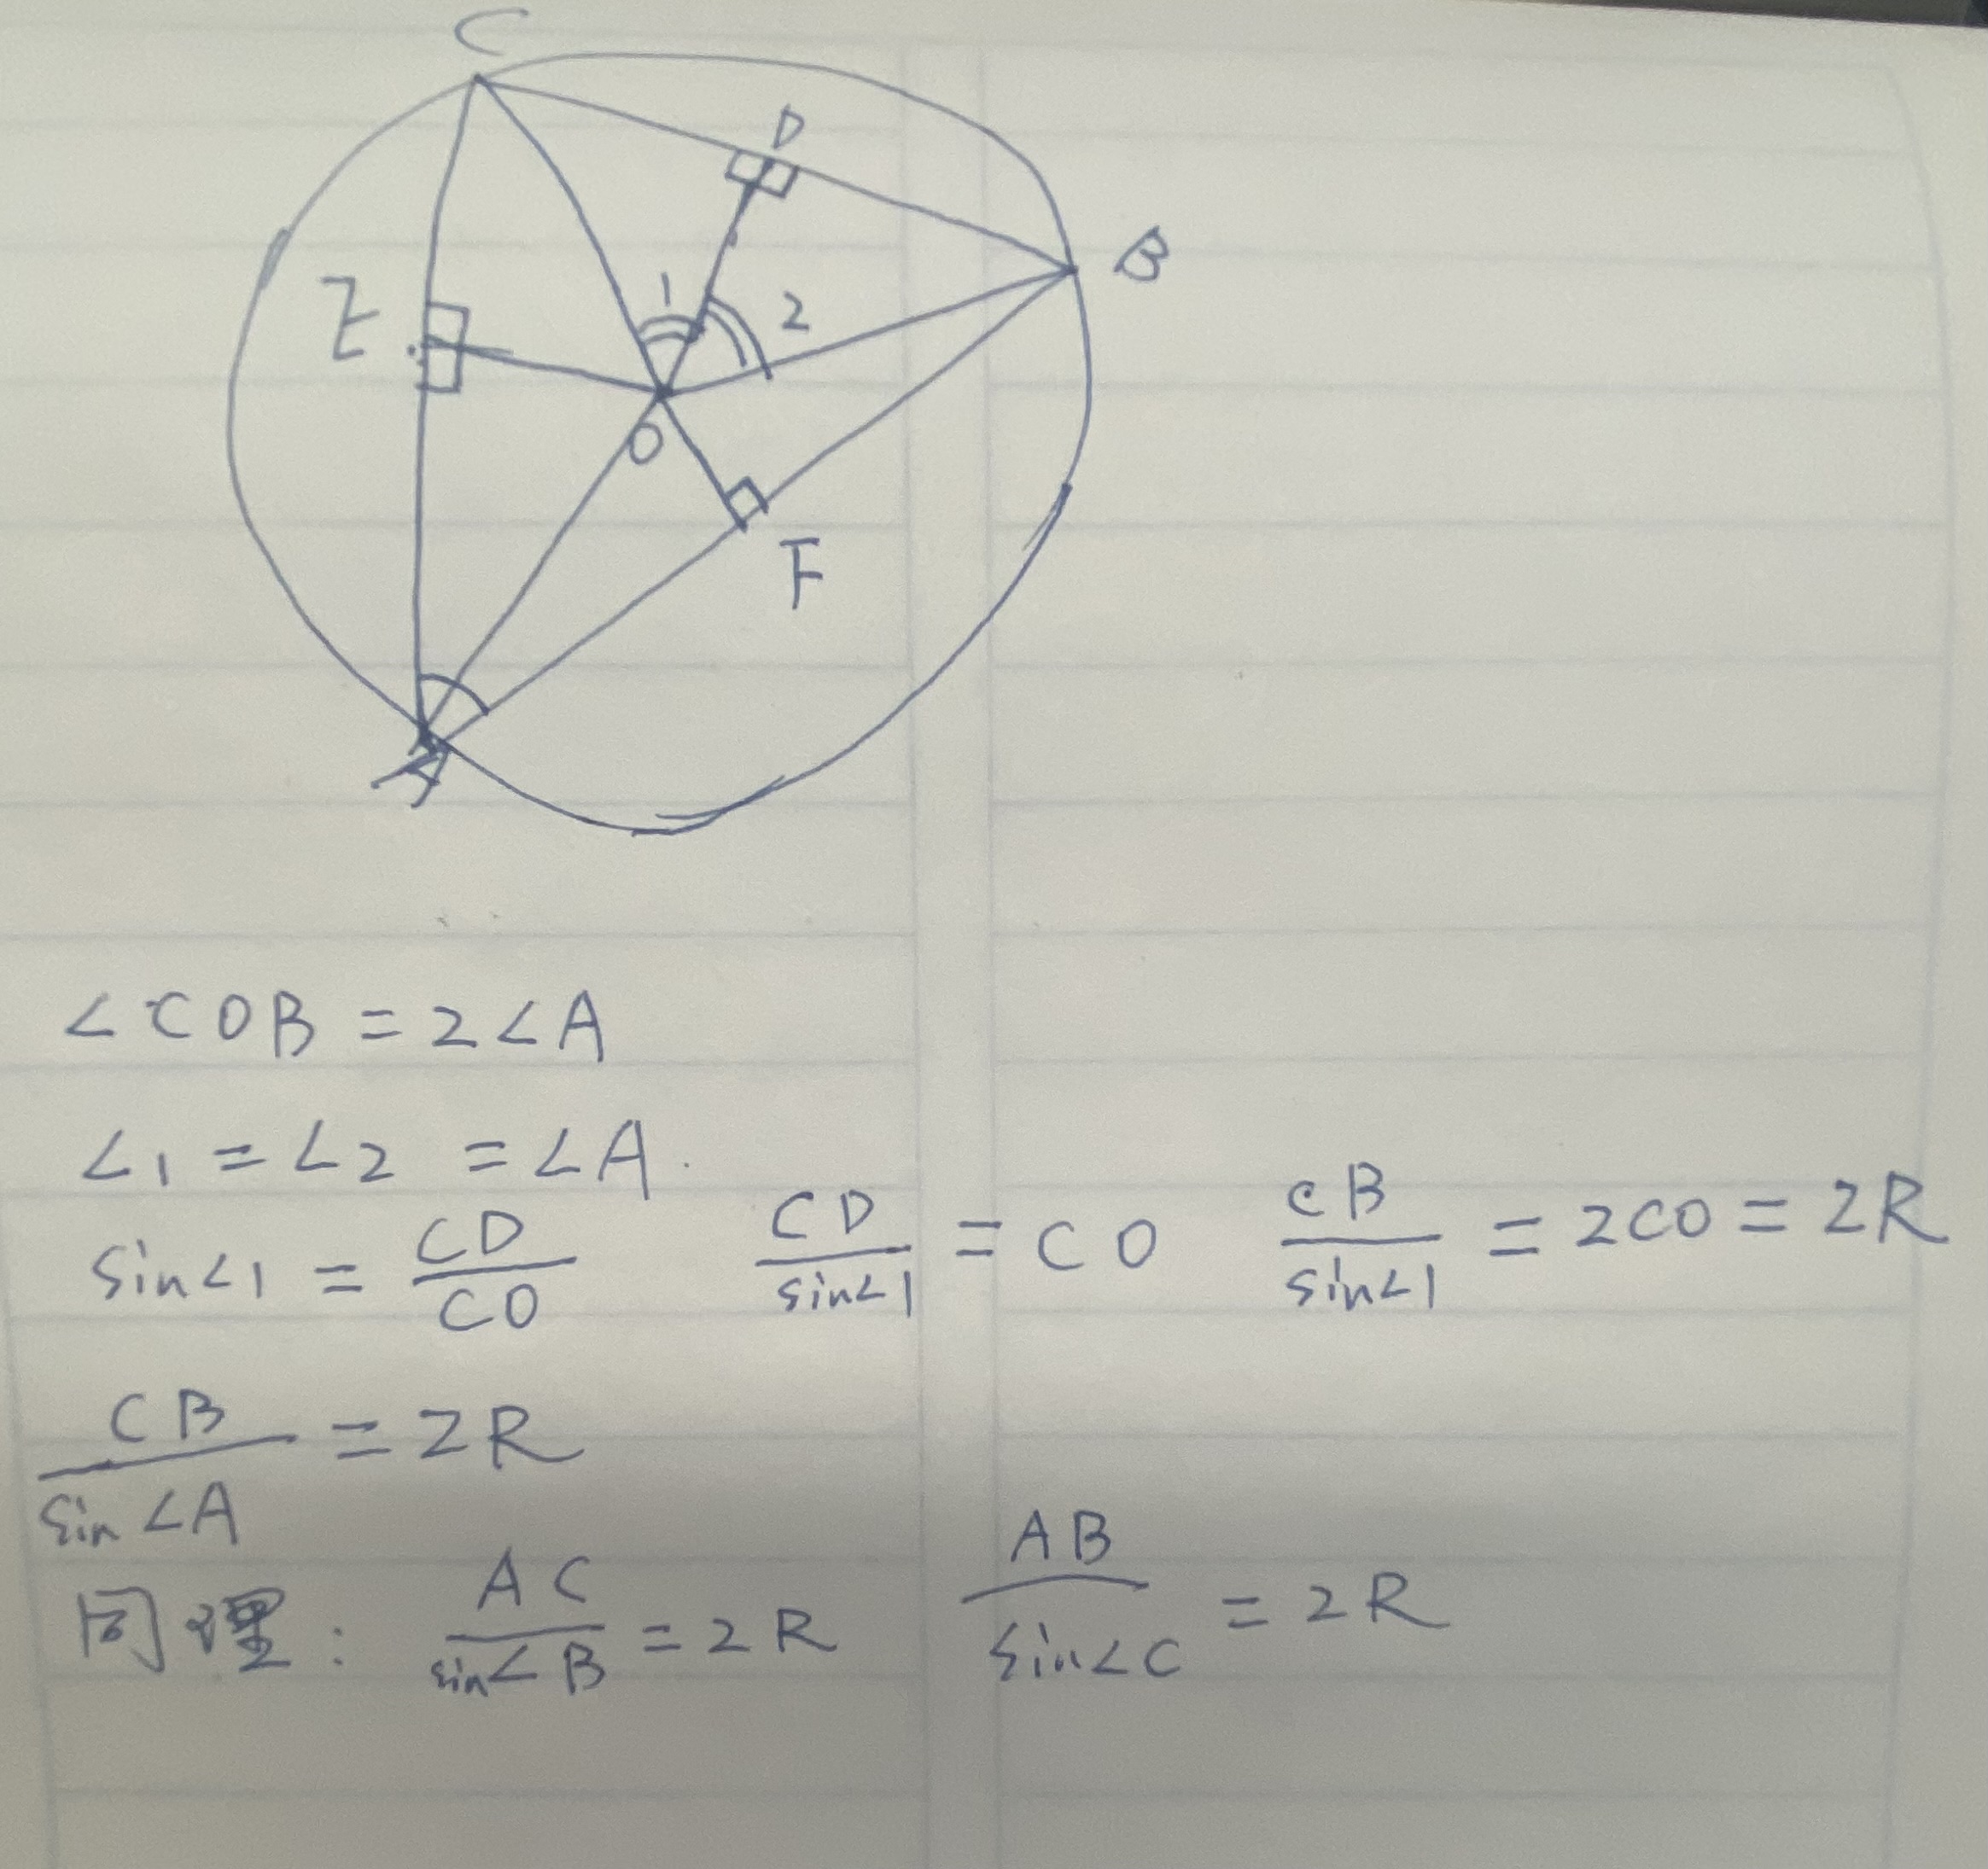 C
D
B
E
1
2
O
F
A
∠COB = 2∠A
∠1 = ∠2 = ∠A.
sin∠1 = CD/CO   CD/sin∠1 = CO   CB/sin∠1 = 2CO = 2R
CB/sin∠A = 2R
同理: AC/sin∠B = 2R   AB/sin∠C = 2R